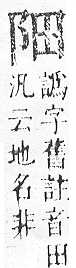 譌字舊註音田
汎云地名非